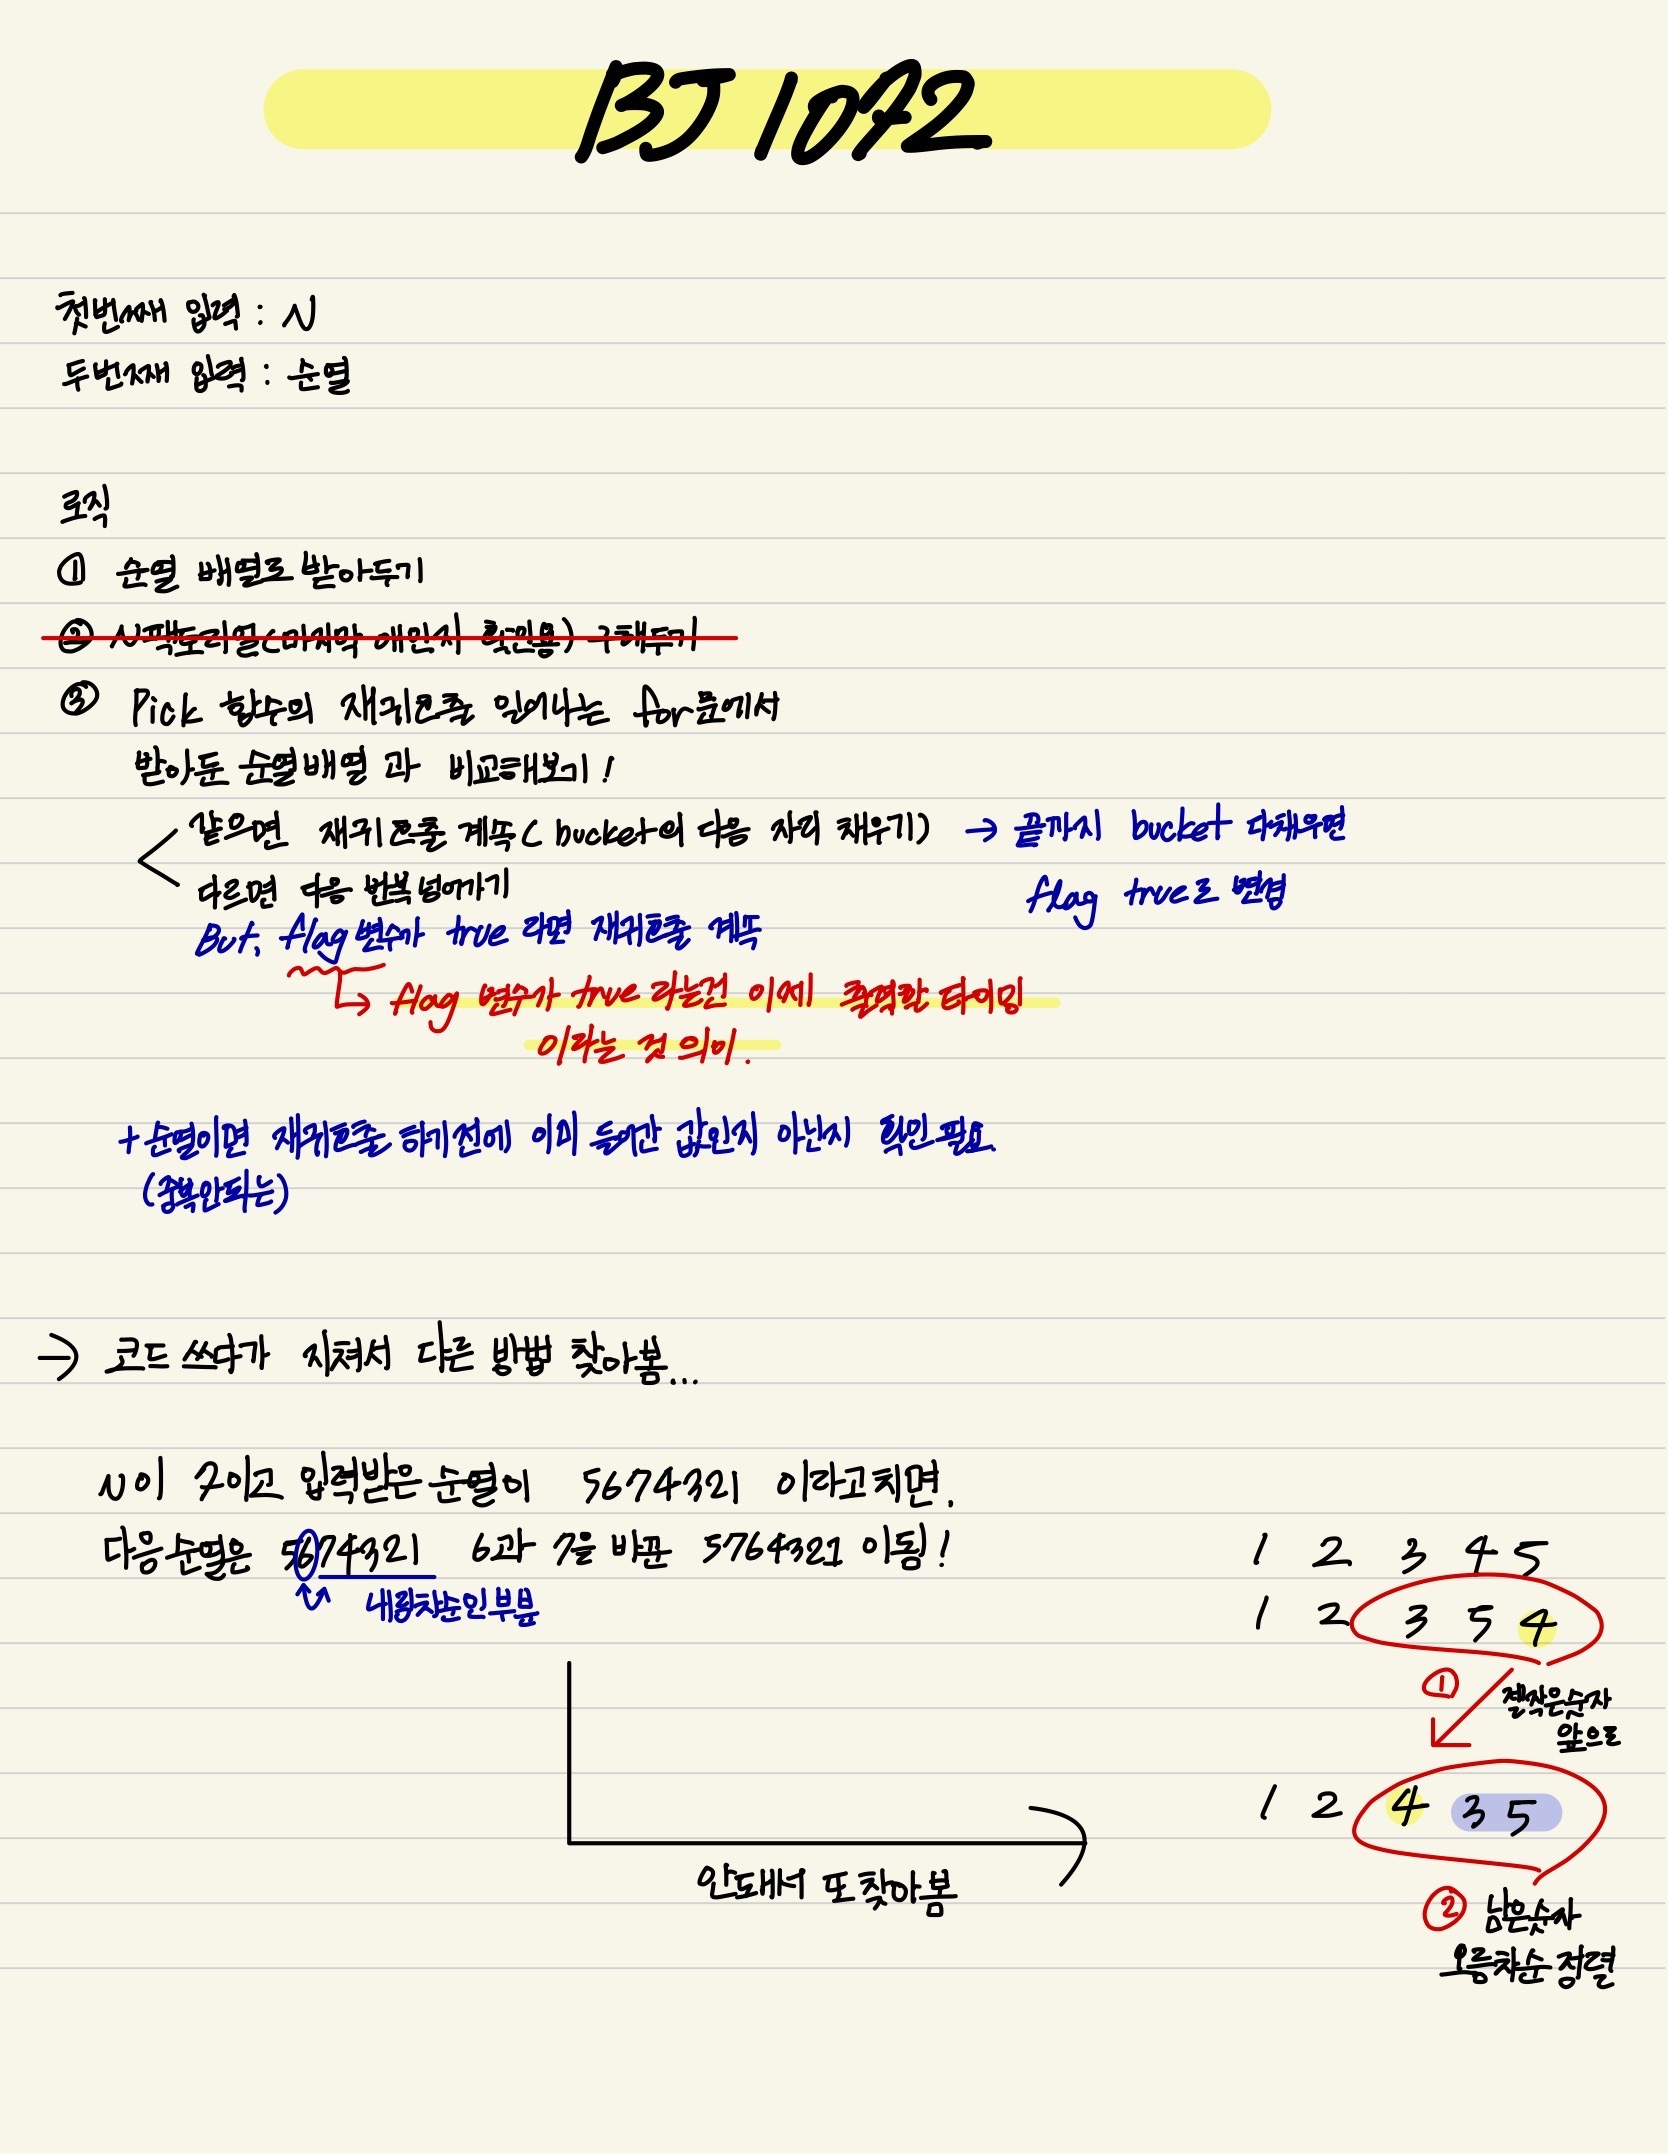 BJ 1072
첫번째 입력 : N
두번째 입력 : 순열
로직
① 순열 배열로 받아두기
② N팩토리얼(마지막 애인지 확인용) 구해두기
③ Pick 함수의 재귀호출 일어나는 for문에서
받아둔 순열배열 과 비교해보기!
같으면 재귀호출 계속( bucket의 다음 자리 채우기) → 끝까지 bucket 다채우면
flag true로 변경
다르면 다음 번복 넘어가기
But, flag변수가 true 라면 재귀호출 계속
↳ flag 변수가 true 라는건 이제 출력할 타이밍
이라는 것 의미.
+ 순열이면 재귀호출 하기전에 이미 들어간 값인지 아닌지 확인필요.
(중복안되는)
→ 코드 쓰다가 지쳐서 다른 방법 찾아봄...
N이 7이고 입력받은 순열이 5674321 이라고치면.
다음순열은 5674321 6과 7을 바꾼 5764321 이됨!
내림차순인부분
안돼서 또찾아봄
1 2 3 4 5
1 2 3 5 4
① 젤작은숫자
앞으로
1 2 4 3 5
② 남은숫자
오름차순 정렬